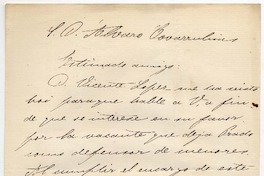 S. D. Álvaro Covarrubias
Estimado amigo:
D. Vicente Lopez me ha visto
hoi para que hable a V. a fin
de que se interese en su favor
por la vacante que deja Prado
como defensor de menores.
Al cumplir el encargo de este